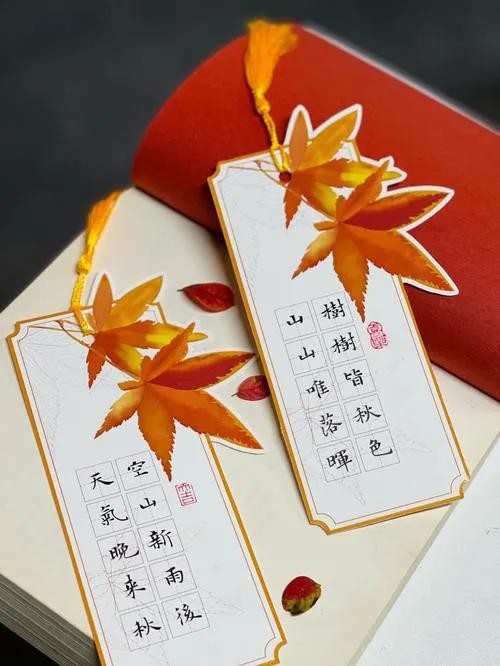 空山新雨後
天氣晚来秋
樹樹皆秋色
山山唯落暉